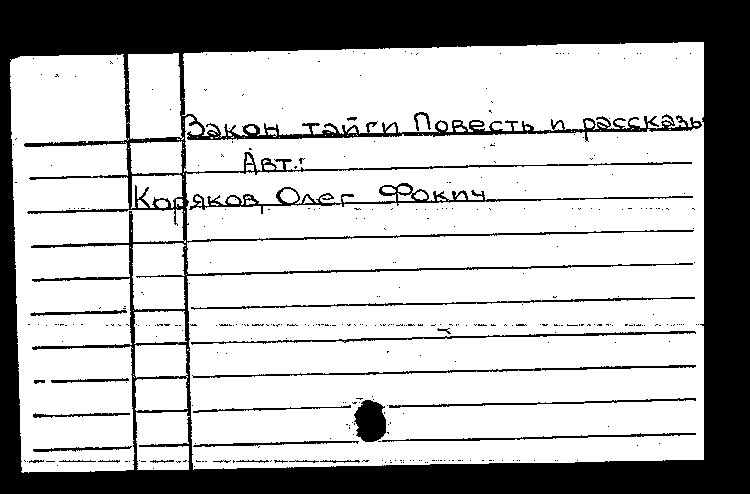 Закон тайги Повесть и рассказы
Авт.:
Коряков, Олег Фокич